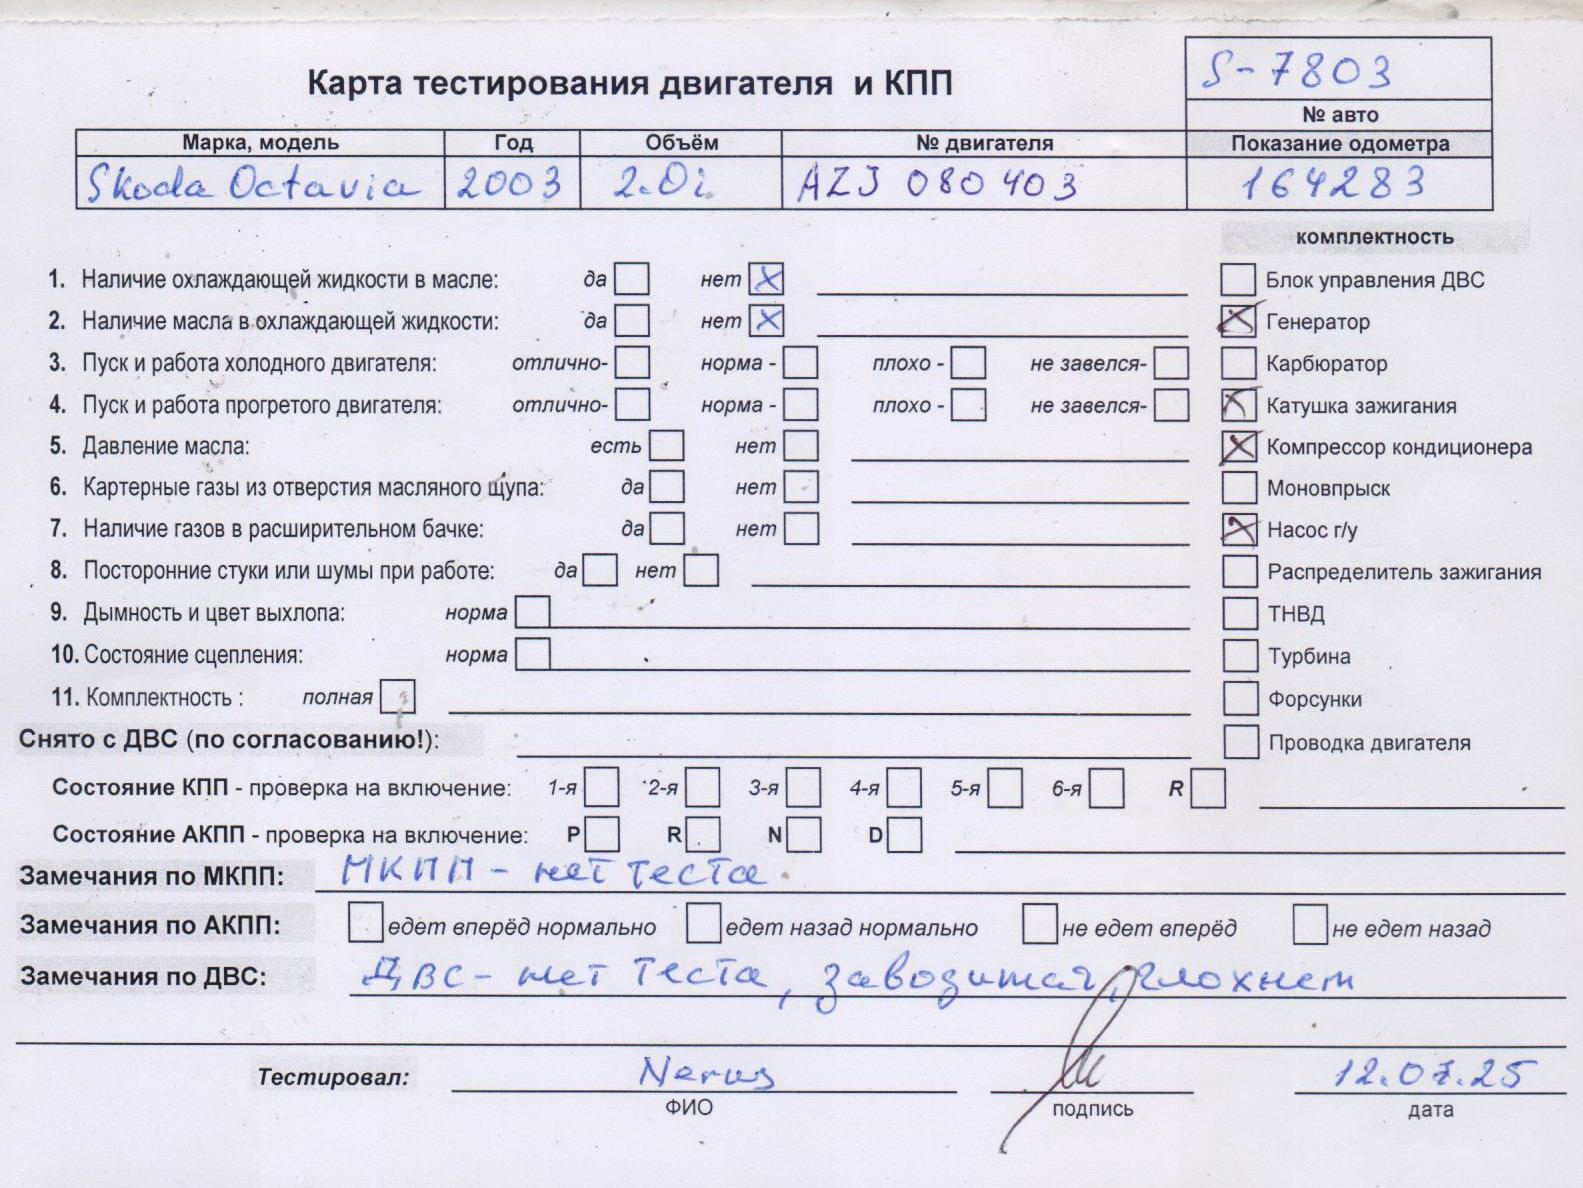 S-7803
Карта тестирования двигателя и КПП
№ авто
Марка, модель Год Объём № двигателя Показание одометра
Skoda Octavia 2003 2.0i AZJ 080403 164283
комплектность
1. Наличие охлаждающей жидкости в масле: да нет x Блок управления ДВС
2. Наличие масла в охлаждающей жидкости: да нет x Генератор
3. Пуск и работа холодного двигателя: отлично- норма - плохо - не завелся- Карбюратор
4. Пуск и работа прогретого двигателя: отлично- норма - плохо - не завелся- Катушка зажигания
5. Давление масла: есть нет Компрессор кондиционера
6. Картерные газы из отверстия масляного щупа: да нет Моновпрыск
7. Наличие газов в расширительном бачке: да нет Насос г/у
8. Посторонние стуки или шумы при работе: да нет Распределитель зажигания
9. Дымность и цвет выхлопа: норма ТНВД
10. Состояние сцепления: норма Турбина
11. Комплектность : полная Форсунки
Снято с ДВС (по согласованию!): Проводка двигателя
Состояние КПП - проверка на включение: 1-я 2-я 3-я 4-я 5-я 6-я R
Состояние АКПП - проверка на включение: P R N D
Замечания по МКПП: МКПП - нет теста
Замечания по АКПП: едет вперёд нормально едет назад нормально не едет вперёд не едет назад
Замечания по ДВС: ДВС - нет теста, заводится, глохнет
Тестировал: 12.07.25
ФИО подпись дата